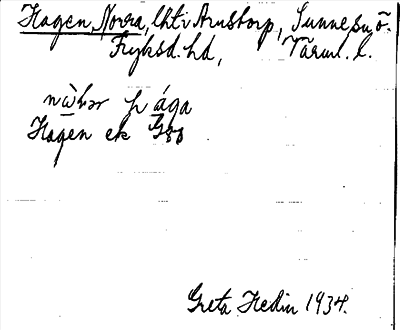 Hagen, Norra, lht i Arnstorp, Sunne sn ö.
Fryksd. hd, Värml. l.
nὼhər h ága
Hagen ek G80
Greta Hedin 1934.